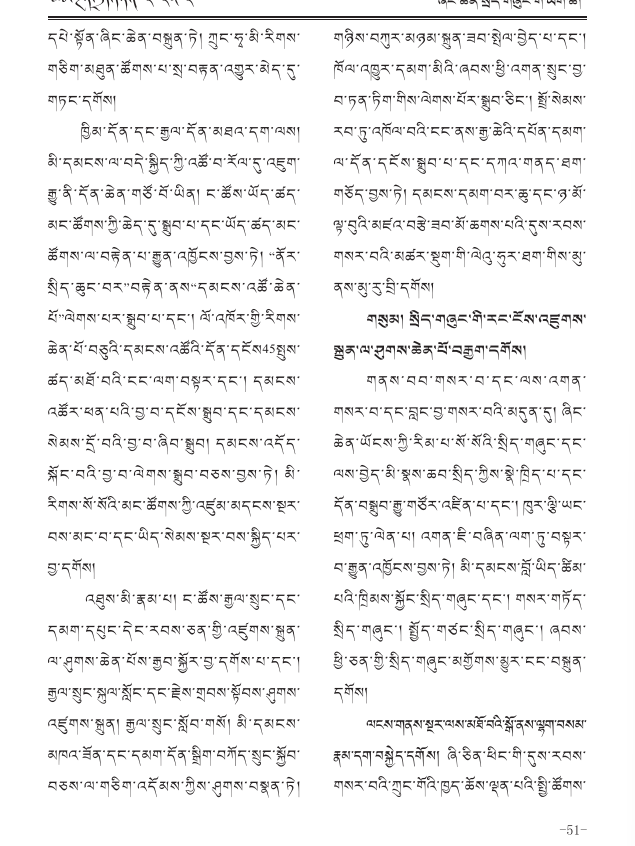 དཔེ་སྟོན་ཞིང་ཆེན་བསྐྲུན་ཏེ། ཀྲུང་ཧྭ་མི་རིགས་
གཅིག་མཐུན་ཚོགས་པ་སྲ་བརྟན་འགྱུར་མེད་དུ་
གཏང་དགོས།
ཁྱིམ་དོན་དང་རྒྱལ་དོན་མཐའ་དག་ལས།
མི་དམངས་ལ་བདེ་སྐྱིད་ཀྱི་འཚོ་བ་རོལ་དུ་འཇུག་
རྒྱུ་ནི་དོན་ཆེན་གཙོ་བོ་ཡིན། ང་ཚོས་ཡོད་ཚད་
མང་ཚོགས་ཀྱི་ཆེད་དུ་སྒྲུབ་པ་དང་ཡོད་ཚད་མང་
ཚོགས་ལ་བརྟེན་པ་རྒྱུན་འཁྱོངས་བྱས་ཏེ། “ནོར་
སྲིད་ཆུང་བར”བརྟེན་ནས“དམངས་འཚོ་ཆེན་
པོ”ལེགས་པར་སྒྲུབ་པ་དང་། ལོ་འཁོར་གྱི་རིགས་
ཆེན་པོ་བཅུའི་དམངས་འཚོའི་དོན་དངོས45སྤུས་
ཚད་མཐོ་བའི་ངང་ལག་བསྟར་དང་། དམངས་
འཚོར་ཕན་པའི་བྱ་བ་དངོས་སྒྲུབ་དང་དམངས་
སེམས་དྲོ་བའི་བྱ་བ་ཞིབ་སྒྲུབ། དམངས་འདོད་
སྐོང་བའི་བྱ་བ་ལེགས་སྒྲུབ་བཅས་བྱས་ཏེ། མི་
རིགས་སོ་སོའི་མང་ཚོགས་ཀྱི་འཛུམ་མདངས་སྔར་
བས་མང་བ་དང་ཡིད་སེམས་སྔར་བས་སྐྱིད་པར་
བྱ་དགོས།
འཐུས་མི་རྣམ་པ། ང་ཚོས་རྒྱལ་སྲུང་དང་
དམག་དཔུང་དེང་རབས་ཅན་གྱི་འཛུགས་སྐྲུན་
ལ་ཤུགས་ཆེན་པོས་རྒྱབ་སྐྱོར་བྱ་དགོས་པ་དང་།
རྒྱལ་སྲུང་སྐུལ་སློང་དང་རྗེས་གྲབས་སྟོབས་ཤུགས་
འཛུགས་སྐྲུན། རྒྱལ་སྲུང་སློབ་གསོ། མི་དམངས་
མཁའ་ཟོན་དང་དམག་དོན་སྒྲིག་བཀོད་སྲུང་སྐྱོབ་
བཅས་ལ་གཅིག་འདོམས་ཀྱིས་ཤུགས་བསྣན་ཏེ།
གཉིས་བཀུར་མཉམ་སྐྲུན་ཟབ་སྤེལ་བྱེད་པ་དང་།
ཁོལ་འཁྱུར་དམག་མིའི་ཞབས་ཕྱི་འགན་སྲུང་བྱ་
བ་ཏན་ཏིག་གིས་ལེགས་པོར་སྒྲུབ་ཅིང་། སྤྲོ་སེམས་
རབ་ཏུ་འཁོལ་བའི་ངང་ནས་རྒྱ་ཆེའི་དཔོན་དམག་
ལ་དོན་དངོས་སྒྲུབ་པ་དང་དཀའ་གནད་ཐག་
གཅོད་བྱས་ཏེ། དམངས་དམག་བར་ཆུ་དང་ཉ་མོ་
ལྟ་བུའི་མཛའ་བརྩེ་ཟབ་མོ་ཆགས་པའི་དུས་རབས་
གསར་བའི་མཚར་སྡུག་གི་ལེའུ་ཧུར་ཐག་གིས་མུ་
ནས་མུ་རུ་བྲི་དགོས།
གསུམ། སྲིད་གཞུང་གི་རང་ངོས་འཛུགས་
སྐྲུན་ལ་ཤུགས་ཆེན་པོ་བརྒྱག་དགོས།
གནས་བབ་གསར་བ་དང་ལས་འགན་
གསར་བ་དང་བླང་བྱ་གསར་བའི་མདུན་དུ། ཞིང་
ཆེན་ཡོངས་ཀྱི་རིམ་པ་སོ་སོའི་སྲིད་གཞུང་དང་
ལས་བྱེད་མི་སྣས་ཆབ་སྲིད་ཀྱིས་སྣེ་ཁྲིད་པ་དང་
དོན་བསྒྲུབ་རྒྱུ་གཙོར་འཛིན་པ་དང་། ཁུར་ལྕི་ཡང་
ཕྲག་ཏུ་ལེན་པ། འགན་ཇི་བཞིན་ལག་ཏུ་བསྟར་
བ་རྒྱུན་འཁྱོངས་བྱས་ཏེ། མི་དམངས་བློ་ཡིད་ཚིམ་
པའི་ཁྲིམས་སྐྱོང་སྲིད་གཞུང་དང་། གསར་གཏོད་
སྲིད་གཞུང་། སྤྱོད་གཙང་སྲིད་གཞུང་། ཞབས་
ཕྱི་ཅན་གྱི་སྲིད་གཞུང་མགྱོགས་མྱུར་ངང་བསྐྲུན་
དགོས།
ལངས་གནས་སྔར་ལས་མཐོ་བའི་སྒོ་ནས་ལྷག་བསམ་
རྣམ་དག་བསྐྱེད་དགོས། ཞི་ཅིན་ཕིང་གི་དུས་རབས་
གསར་བའི་ཀྲུང་གོའི་ཁྱད་ཆོས་ལྡན་པའི་སྤྱི་ཚོགས་
-51-